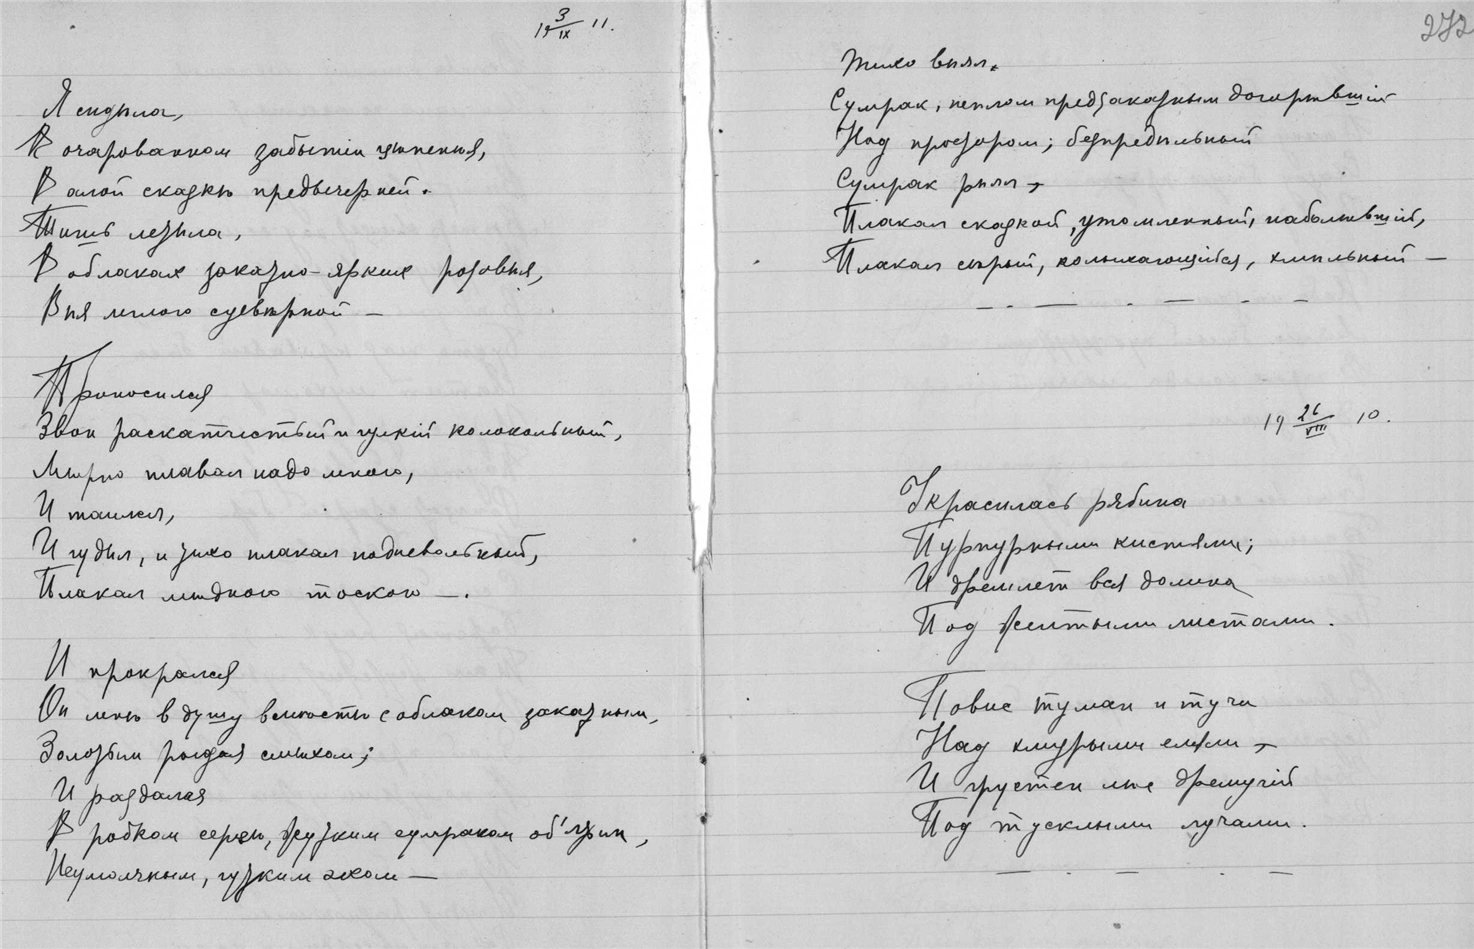 19 3/IX 11.
Я сидѣла,
В очарованном забытіи цѣпенѣя,
В алой сказкѣ предвечерней.
Тишь лезѣла,
В облаках закатно-ярких розовѣя,
Вѣя мглою суевѣрной —
Проносился
Звон раскатистый и гулкій колокольный,
Мѣрно плавал надо мною,
И таился,
И гудѣл, и тихо плакал подневольный,
Плакал мѣдною тоскою —.
И прокрался
Он мнѣ в душу вмѣстѣ с облаком закатным,
Золотым рыдая смѣхом;
И раздался
В робком сердцѣ, жутким сумраком об'ятом,
Неумолчным, гулким эхом —
272
Тихо вѣял.
Сумрак, пеплом предзакатным догорѣвшій
Над простором; безпредѣльный
Сумрак рѣял,
Плакал сказкой, утомленный, наболѣвшій,
Плакал сѣрый, колыхающійся, хмѣльный —
19 26/VIII 10.
Украсилась рябина
Пурпурными кистями;
И дремлет вся долина
Под желтыми листами.
Повис туман и тучи
Над хмурыми елями,
И грустен лѣс дремучій
Под тусклыми лучами.